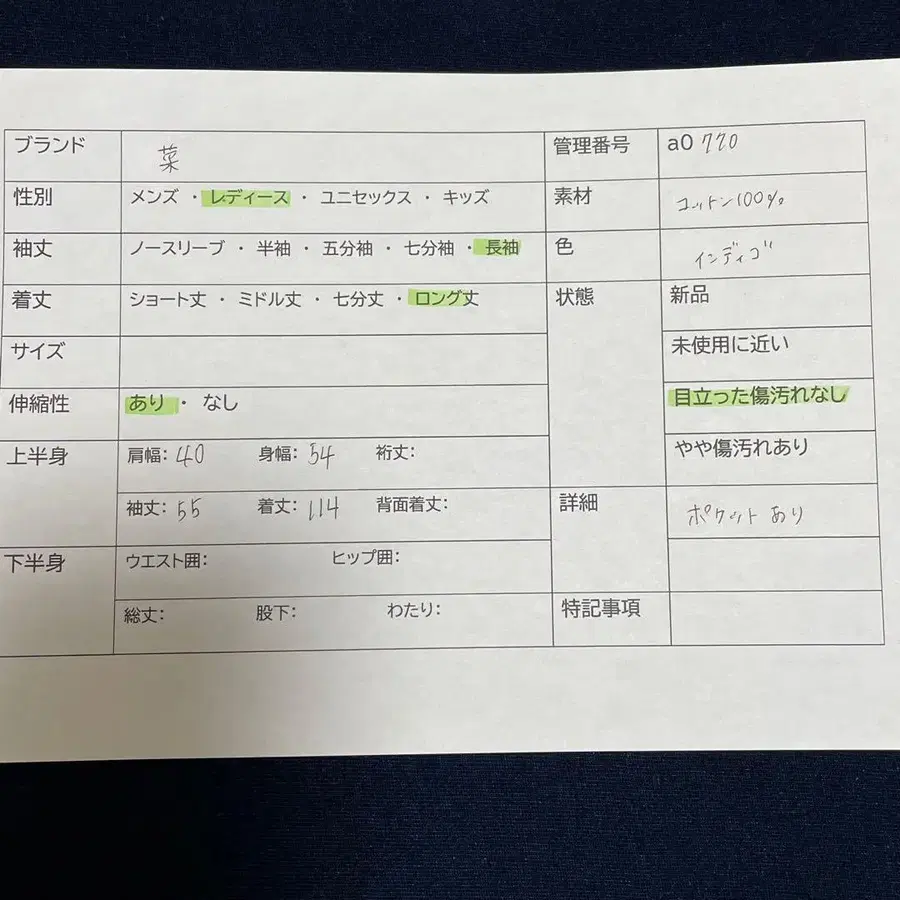 ブランド 菜 管理番号 a0 770
性別 メンズ ・ レディース ・ ユニセックス ・ キッズ 素材 コットン100%
袖丈 ノースリーブ ・ 半袖 ・ 五分袖 ・ 七分袖 ・ 長袖 色 インディゴ
着丈 ショート丈 ・ ミドル丈 ・ 七分丈 ・ ロング丈 状態 新品
サイズ 未使用に近い
伸縮性 あり ・ なし 目立った傷汚れなし
上半身 肩幅: 40 身幅: 54 裄丈: やや傷汚れあり
袖丈: 55 着丈: 114 背面着丈: 詳細 ポケットあり
下半身 ウエスト囲: ヒップ囲:
総丈: 股下: わたり: 特記事項